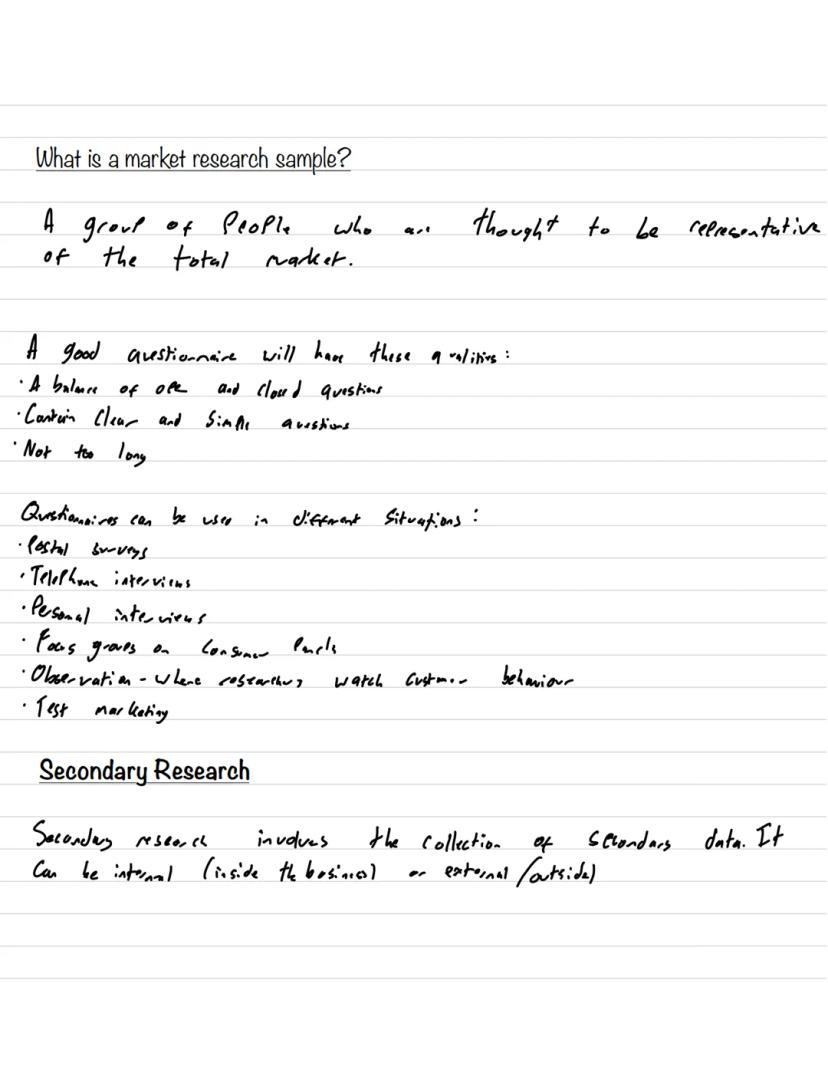 What is a market research sample?
A group of People who are thought to be representative
of the total market.
A good questionnaire will have these qualities :
· A balance of ope and closed questions
· Contain Clear and Simple questions
· Not too long
Questionnaires can be used in different Situations :
· Postal surveys
· Telephone interviews
· Personal interviews
· Focus groups on Consumer Panels
· Observation - where researchers watch Customer behaviour
· Test marketing
Secondary Research
Secondary research involves the collection of secondary data. It
Can be internal (inside the business) or external (outside)